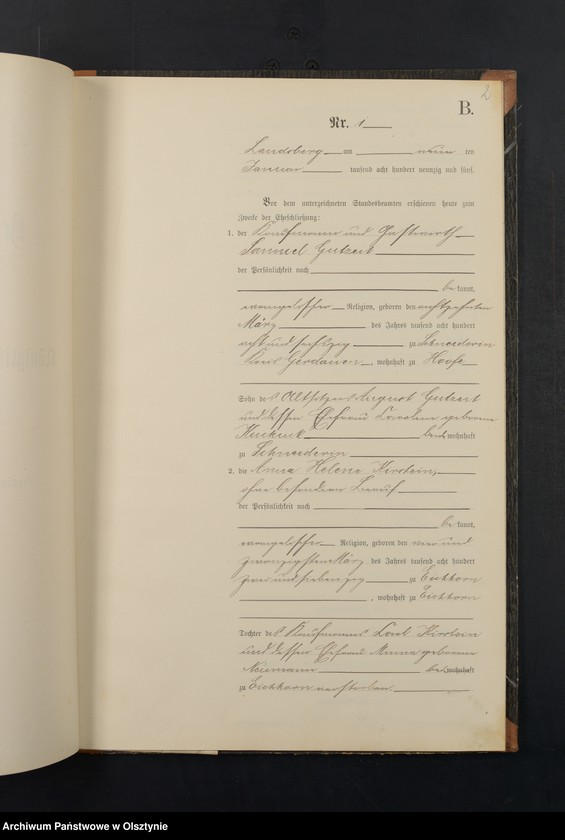 2
B.
Nr. 1
Landsberg am neun ten
Januar tausend acht hundert neunzig und fünf.
Vor dem unterzeichneten Standesbeamten erschienen heute zum
Zwecke der Eheschließung:
1. der Kaufmann und Gastwirth
Samuel Gutzeit
der Persönlichkeit nach
be kannt,
evangelischer Religion, geboren den achtzehnten
März des Jahres tausend acht hundert
acht und sechszig zu Schneiderin
Kreis Gerdauen, wohnhaft zu Hoofe
Sohn des Altsitzers August Gutzeit
und dessen Ehefrau Caroline geborene
Kuckuk beide wohnhaft
zu Schneiderin
2. die Anna Helene Kirstein,
ohne besonderen Beruf
der Persönlichkeit nach
be kannt,
evangelischer Religion, geboren den vier und
zwanzigsten März des Jahres tausend acht hundert
zwei und siebenzig zu Eichhorn
, wohnhaft zu Eichhorn
Tochter des Kaufmanns Carl Kirstein
und dessen Ehefrau Minna geborene
Neumann beide wohnhaft
zu Eichhorn verstorben.
Archiwum Państwowe w Olsztynie